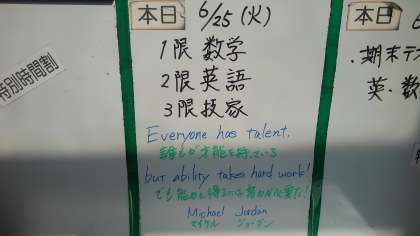 特別時間割
本日 6/25(火)
1限 数学
2限 英語
3限 技家
Everyone has talent.
誰もが才能を持っている
but ability takes hard work!
でも能力を得るには努力が必要だ!
Michael Jordan
マイケル ジョーダン
本日
・期末テ
英・数